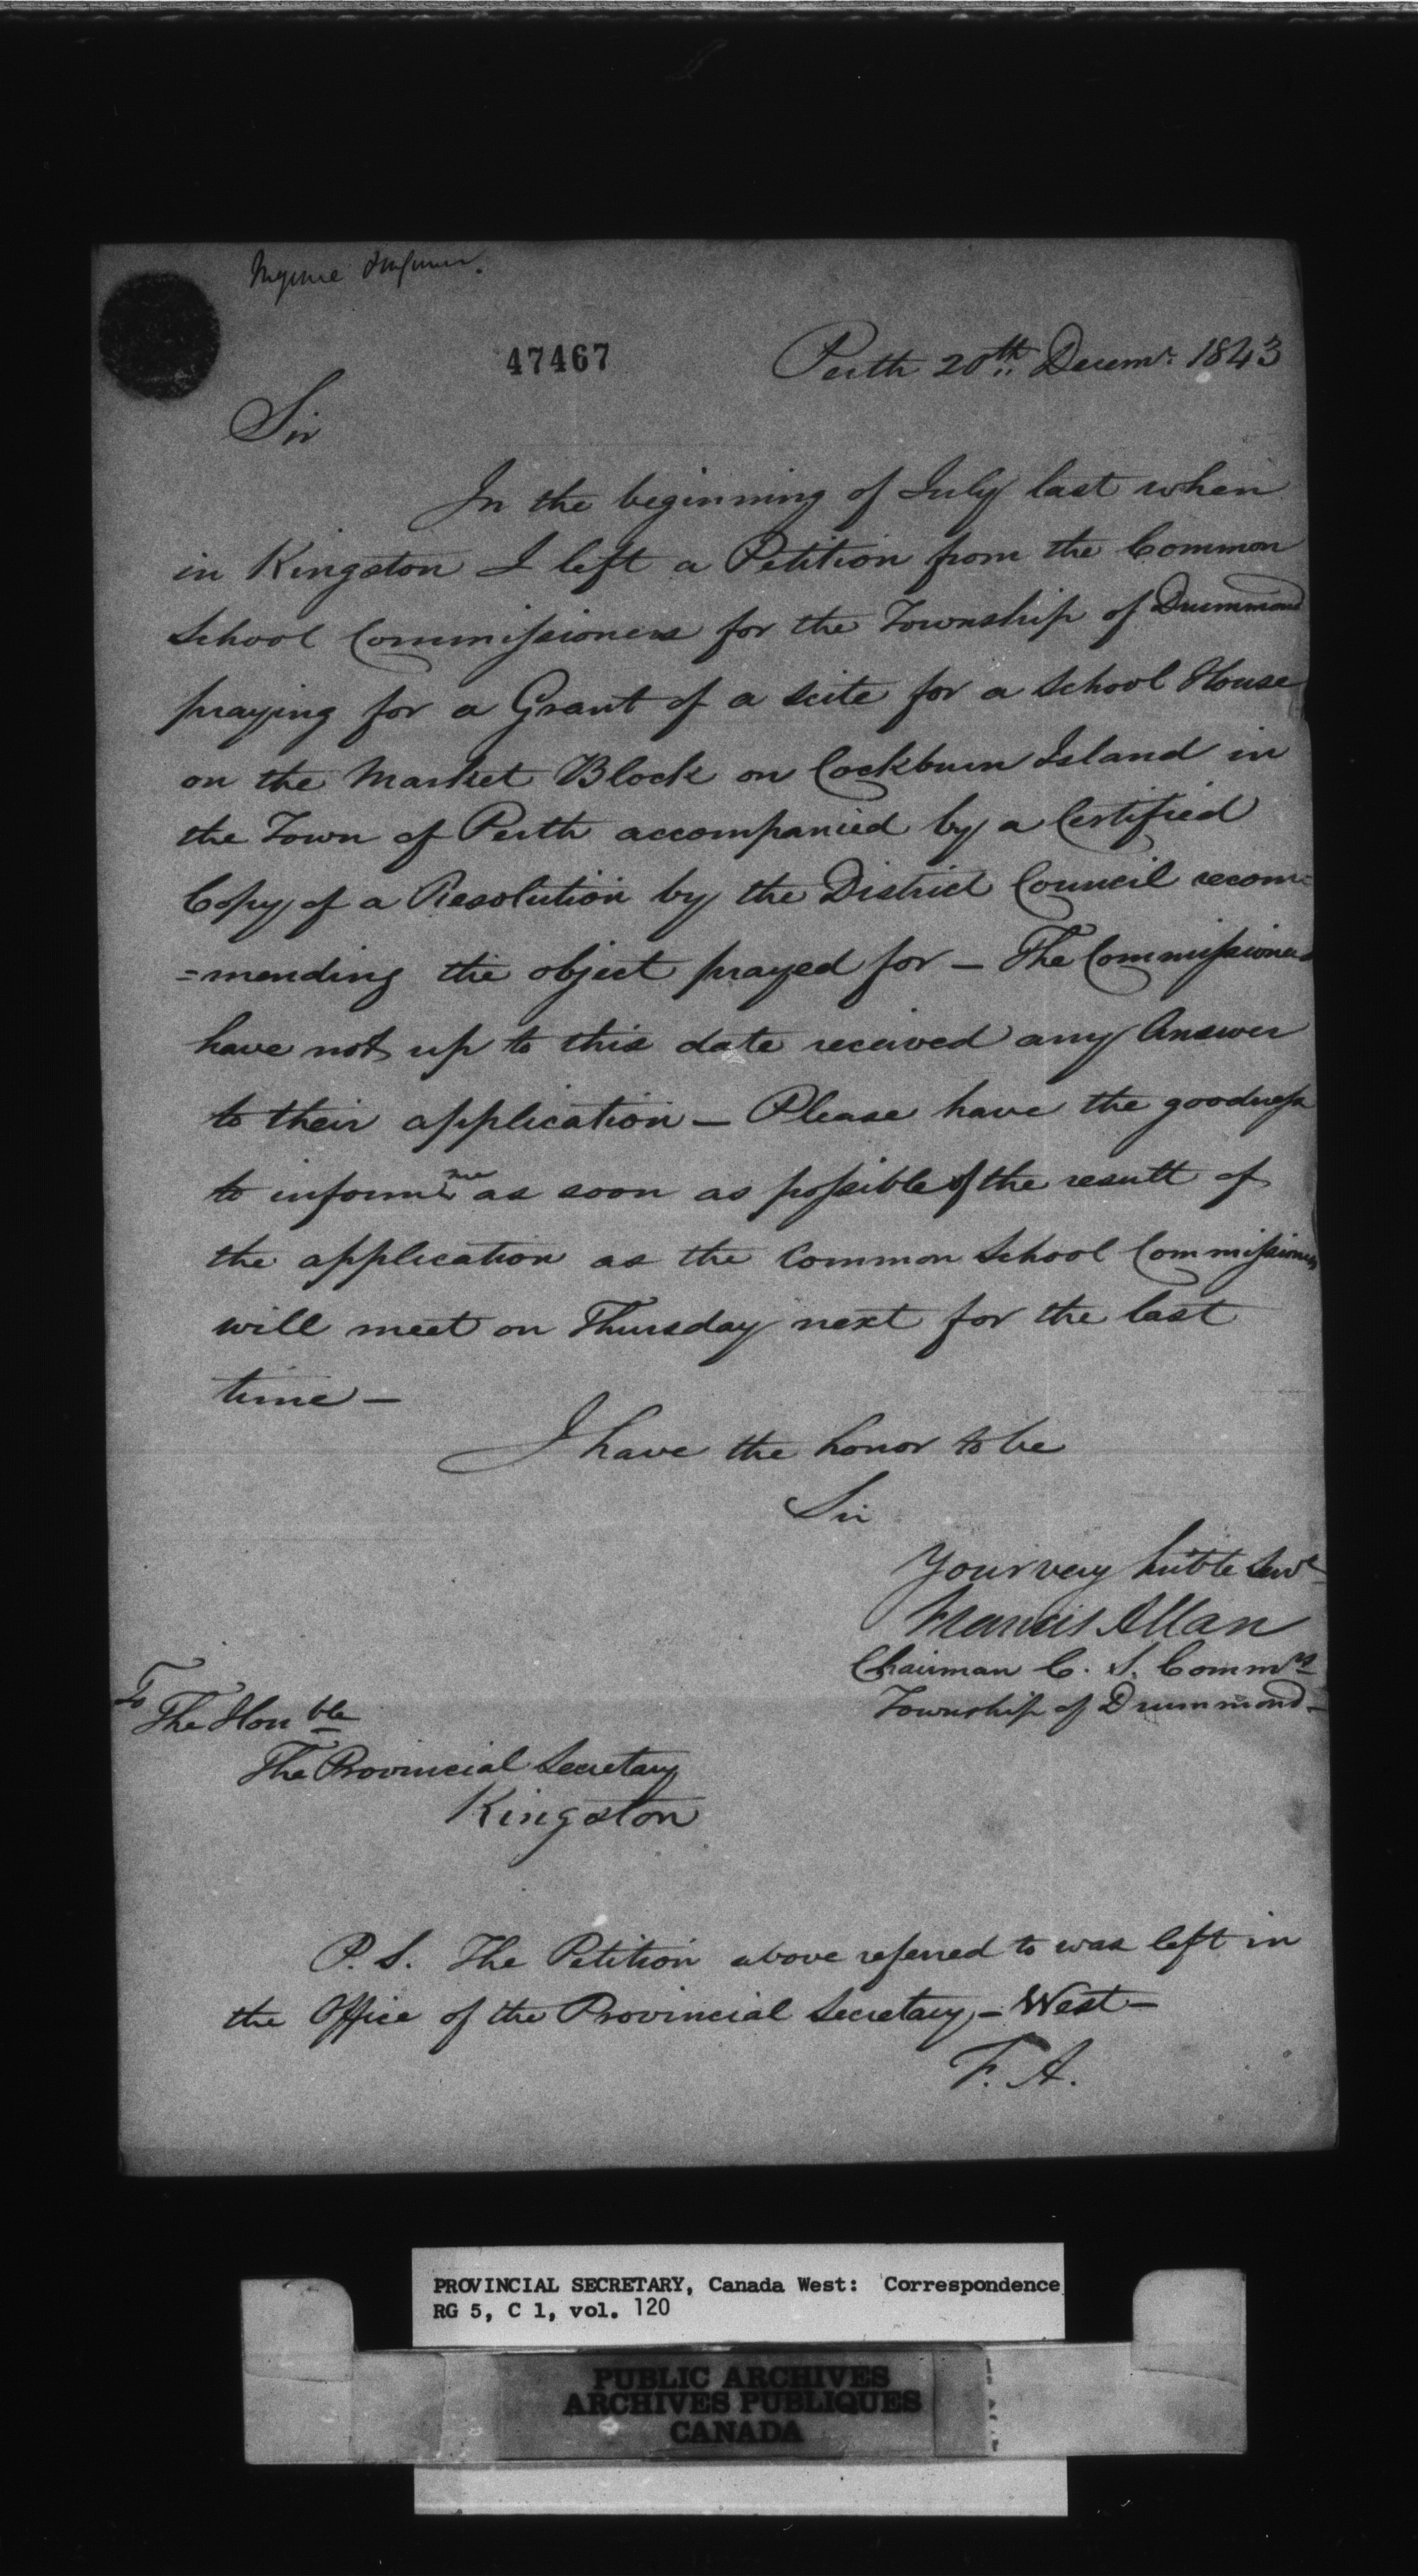 47467
Perth 20th Decemr. 1843
Sir
In the beginning of July last when
in Kingston I left a Petition from the Common
School Commissioners for the Township of Drummond
praying for a Grant of a scite for a School House
on the Market Block on Cockburn Island in
the Town of Perth accompanied by a Certified
Copy of a Resolution by the District Council recom=
=mending the object prayed for — The Commissioners
have not up to this date received any Answer
to their application — Please have the goodness
to inform me as soon as possible of the result of
the application as the Common School Commissioners
will meet on Thursday next for the last
time —
I have the honor to be
Sir
Your very huble Servt
Francis Allan
Chairman C. S. Commrs
Township of Drummond —
To
The Honble
The Provincial Secretary
Kingston
P. S. The Petition above referred to was left in
the Office of the Provincial Secretary, — West —
F. A.
PROVINCIAL SECRETARY, Canada West: Correspondence
RG 5, C 1, vol. 120
PUBLIC ARCHIVES
ARCHIVES PUBLIQUES
CANADA